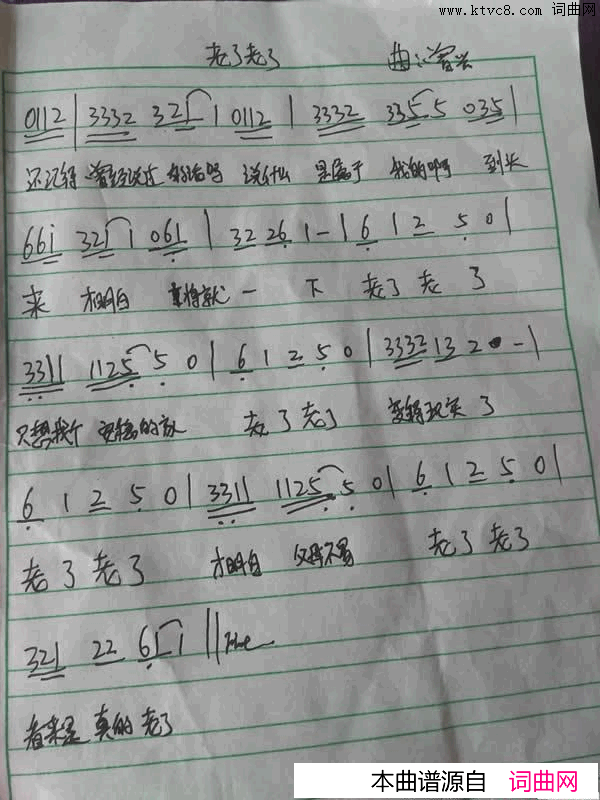 www.ktvc8.com 词曲网
老了老了 曲:
0112 | 3332 321 1 0112 | 3332 335 5 035 |
还记得 曾经说过 的话吗 说什么 是属于 我的啊 到头
661 321 1 061 | 32 26 1 - | 6 1 2 5 0 |
来 才明白 一 下 老了 老 了
3311 1125 5 0 | 6 1 2 5 0 | 3332 13 2 - |
只想找个 安稳的 老了老了 变得现实 了
6 1 2 5 0 | 3311 1125 5 0 | 6 1 2 5 0 |
老了老了 才明白 不易 老了老了
321 22 6 1 1 ||
看来是 真的 老了
本曲谱源自 词曲网